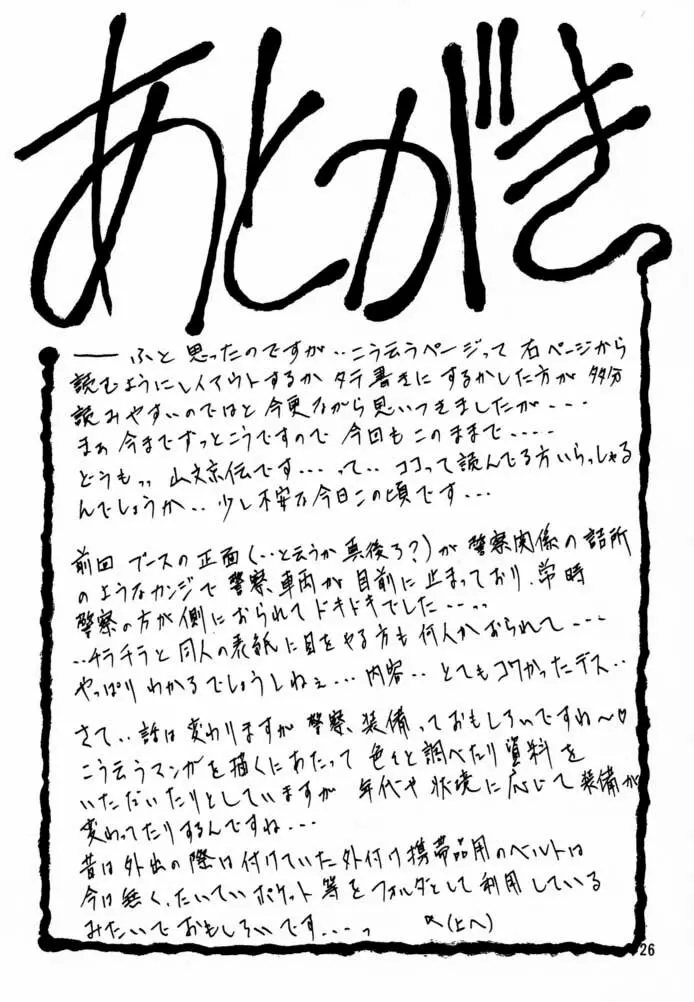 あとがき
── ふと思ったのですが‥こう云うページって右ページから
読むようにレイアウトするかタテ書きにするかした方が多分
読みやすいのではと今更ながら思いつきましたが---
まぁ今までずっとこうですので今回もこのままで-----
どうもっっ山文京伝です---って‥ココって読んでる方いらっしゃる
んでしょうか‥少し不安な今日この頃です---
前回ブースの正面(‥と云うか真後ろ?)が警察関係の詰所
のようなカンジで警察車両が目前に止まっており、常時
警察の方が側におられてドキドキでした--っっ
‥チラチラと同人の表紙に目をやる方も何人かおられて---
やっぱりわかるでしょうしねぇ---内容‥とてもコワかったデス‥
さて‥話は変わりますが警察装備っておもしろいですね〜♡
こう云うマンガを描くにあたって色々と調べたり資料を
いただいたりとしていますが年代や状境に応じて装備が
変わってたりするんですね---
昔は外出の際は付けていた外付け携帯品用のベルトは
今は無く、たいていポケット等をフォルダとして利用している
みたいでおもしろいです---っ
(上へ)
26